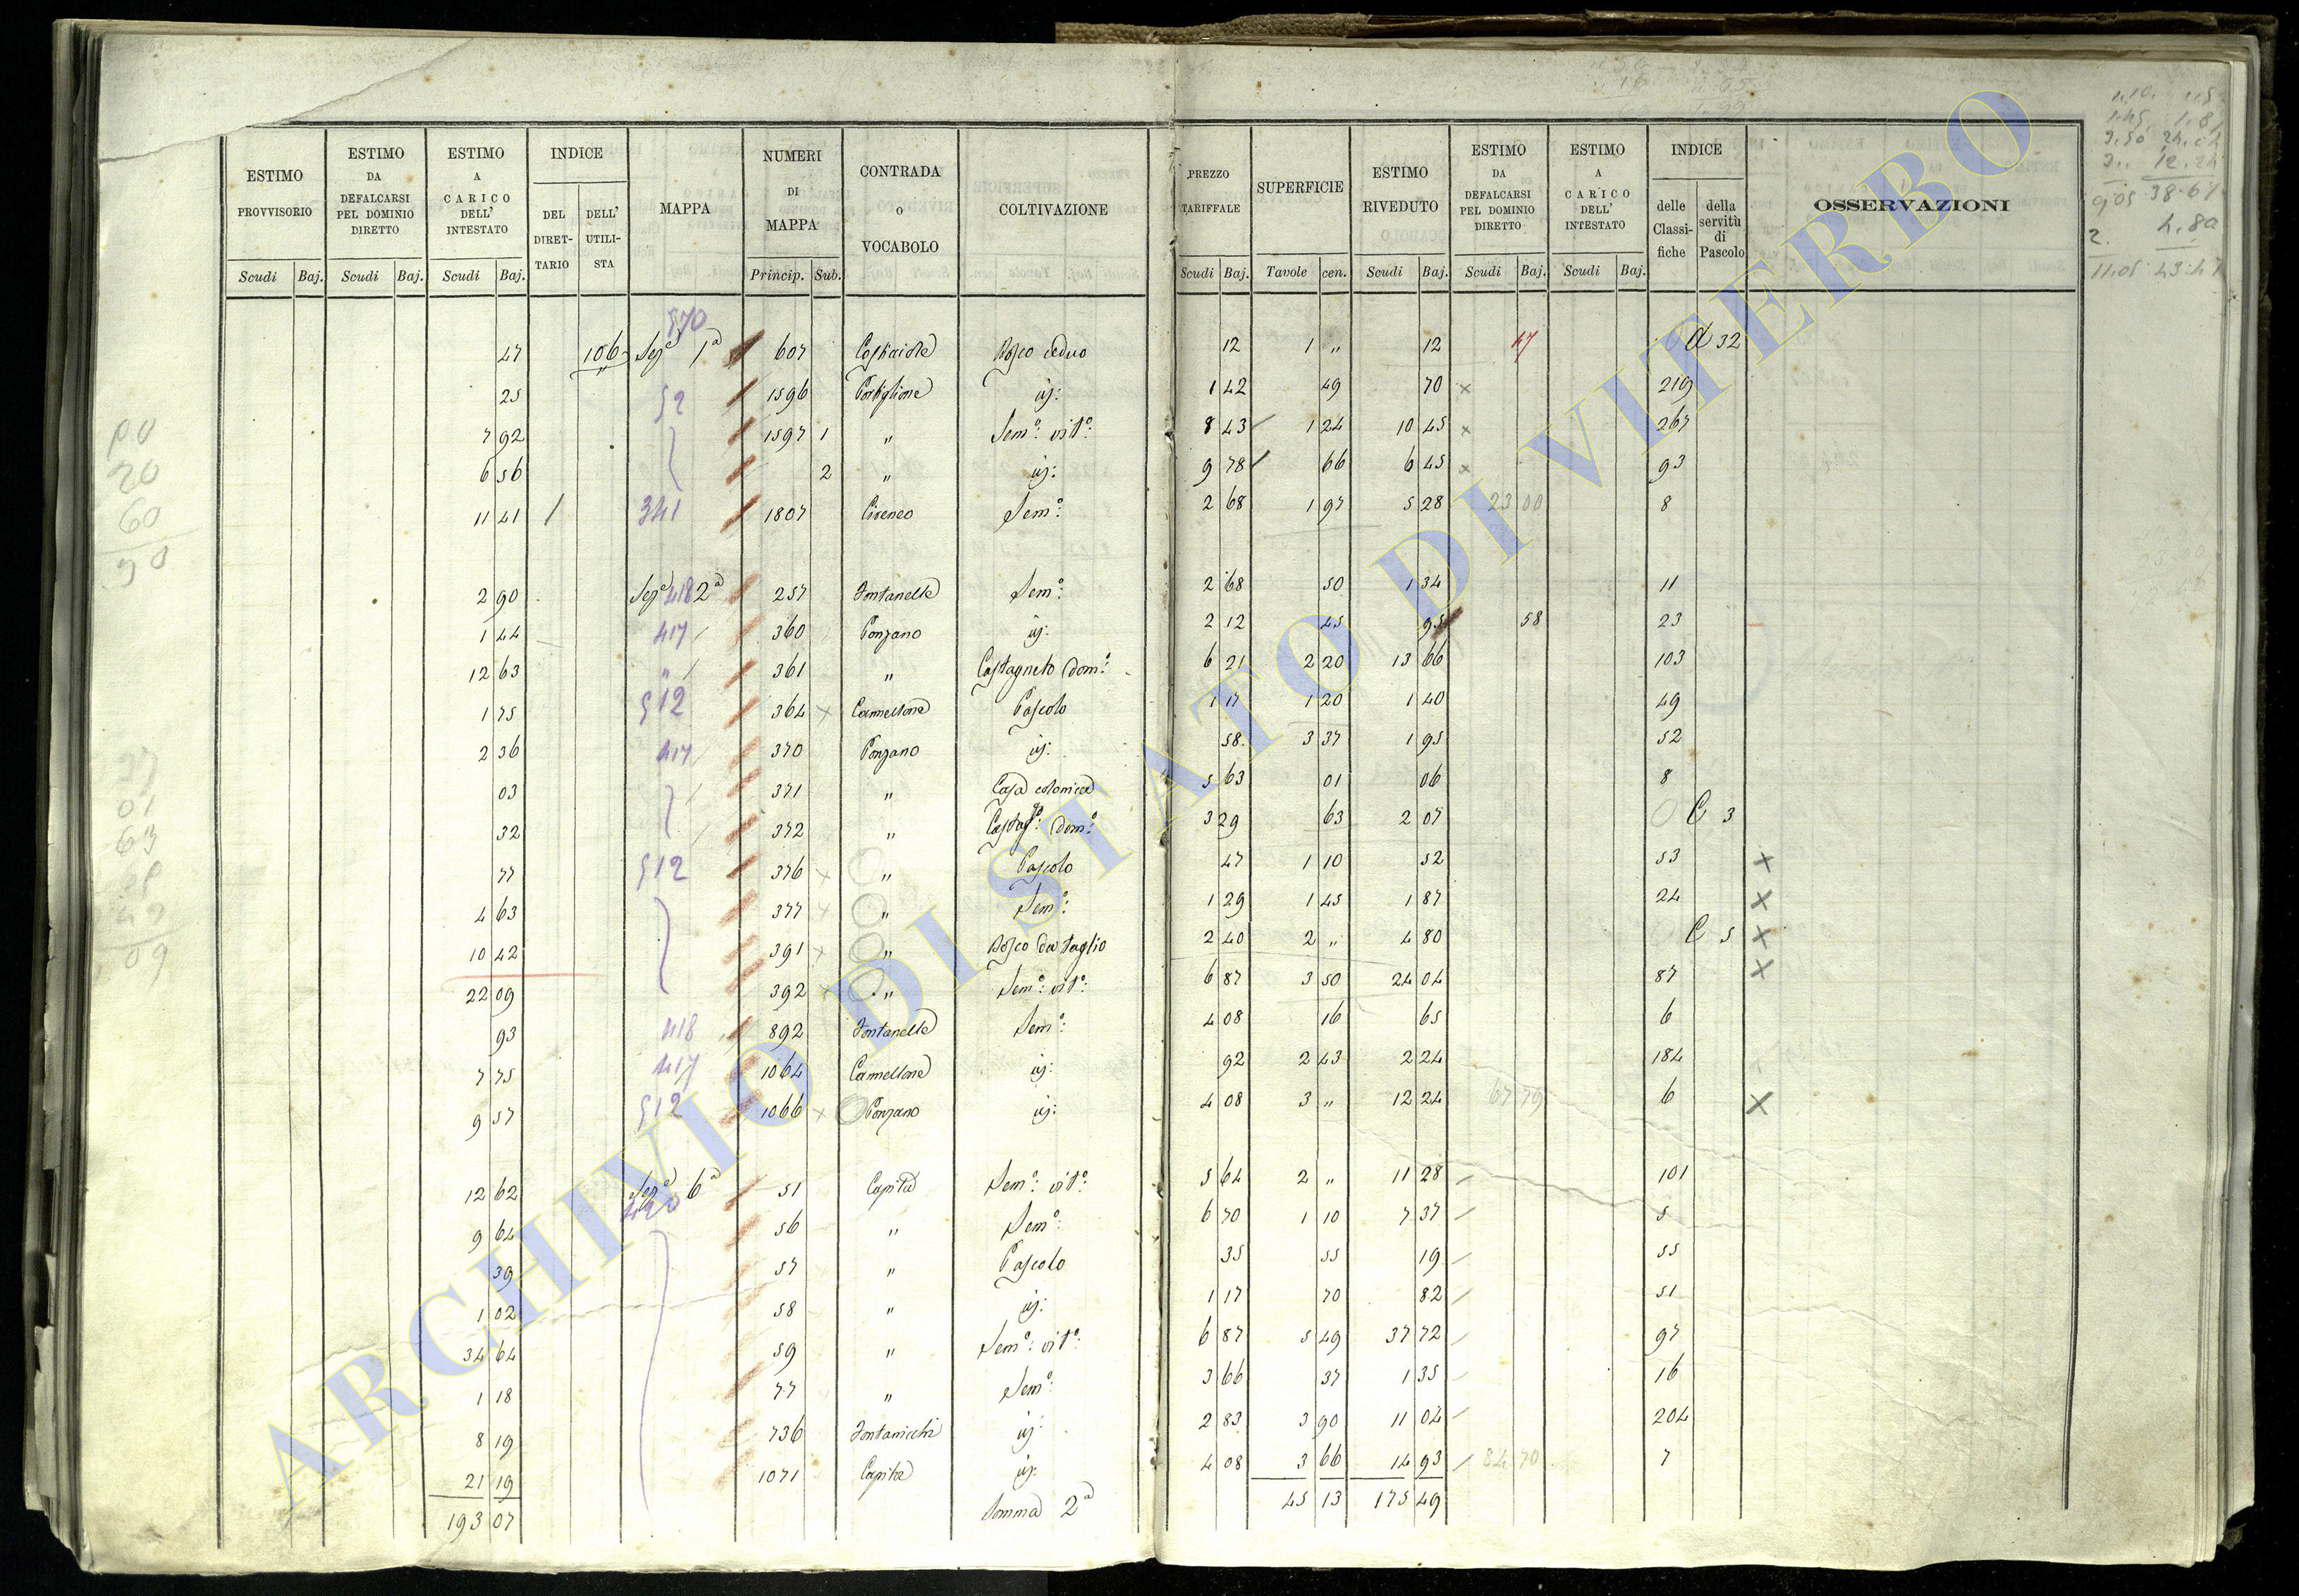 ESTIMO PROVVISORIO Scudi Baj.
ESTIMO DA DEFALCARSI PEL DOMINIO DIRETTO Scudi Baj.
ESTIMO A CARICO DELL' INTESTATO Scudi Baj.
INDICE DEL DIRET-TARIO DELL' UTILI-STA
MAPPA
NUMERI DI MAPPA Princip. Sub.
CONTRADA o VOCABOLO
COLTIVAZIONE
PREZZO TARIFFALE Scudi Baj.
SUPERFICIE Tavole cen.
ESTIMO RIVEDUTO Scudi Baj.
ESTIMO DA DEFALCARSI PEL DOMINIO DIRETTO Scudi Baj.
ESTIMO A CARICO DELL' INTESTATO Scudi Baj.
INDICE delle Classi-fiche della servitù di Pascolo
OSSERVAZIONI
570
47 106 Sez.e 1a 607 Bosco ceduo 12 1 " 12 47 d 32
25 52 1596 Portiglione id: 1 42 49 70 x 219
7 92 1597 1 " Sem.o: vit.o: 8 43 1 24 10 45 x 267
6 56 2 " id: 9 78 66 6 45 x 93
11 41 / 341 1807 Cireneo Sem.o: 2 68 1 97 5 28 23 00 8
2 90 Sez.e 418 2a 257 Fontanelle Sem.o: 2 68 50 1 34 11
1 44 417 360 Ponzano id: 2 12 45 95 58 23
12 63 " 361 " Castagneto dom.o: 6 21 2 20 13 66 103
1 75 512 364 x Cannellone Pascolo 1 17 1 20 1 40 49
2 36 417 370 Ponzano id: 58 3 37 1 95 52
03 371 " Casa colonica 5 63 01 06 8
32 372 " Castag.to: dom.o: 3 29 63 2 07 C 3
77 512 376 x " Pascolo 47 1 10 52 53 x
4 63 377 x " Sem.o: 1 29 1 45 1 87 24 x
10 42 391 x " Bosco da taglio 2 40 2 " 4 80 C 5 x
22 09 392 x " Sem.o: vit.o: 6 87 3 50 24 04 87 x
93 418 892 Fontanelle Sem.o: 4 08 16 65 6
7 75 417 1064 Cannellone id: 92 2 43 2 24 184
9 57 512 1066 x Ponzano id: 4 08 3 " 12 24 67 79 6 x
12 62 Sez.e 6a 51 Capita Sem.o: vit.o: 5 64 2 " 11 28 101
9 64 420 56 " Sem.o: 6 70 1 10 7 37 5
39 57 " Pascolo 35 55 19 55
1 02 58 " id: 1 17 70 82 51
34 64 59 " Sem.o: vit.o: 6 87 5 49 37 72 97
1 18 77 " Sem.o: 3 66 37 1 35 16
8 19 736 Fontanicchi id: 2 83 3 90 11 04 204
21 19 1071 Capita id: 4 08 3 66 14 93 84 70 7
193 07 Somma 2a 45 13 175 49
20
60
90
01
63
09
ARCHIVIO DI STATO DI VITERBO